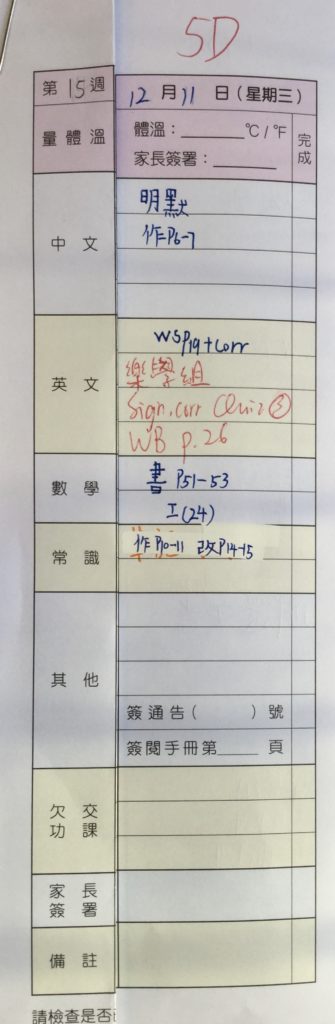 5D
第15週 12月11日(星期三)
量體溫 體溫：______℃/℉ 完成
家長簽署：______
中文 明默
作P6-7
英文 WSP19+Corr
樂學組
Sign.corr Quiz③
WB p.26
數學 書P51-53
工(24)
常識 作P10-11 改P14-15
其他
簽通告( )號
簽閱手冊第____頁
欠交功課
家長簽署
備註
請檢查是否